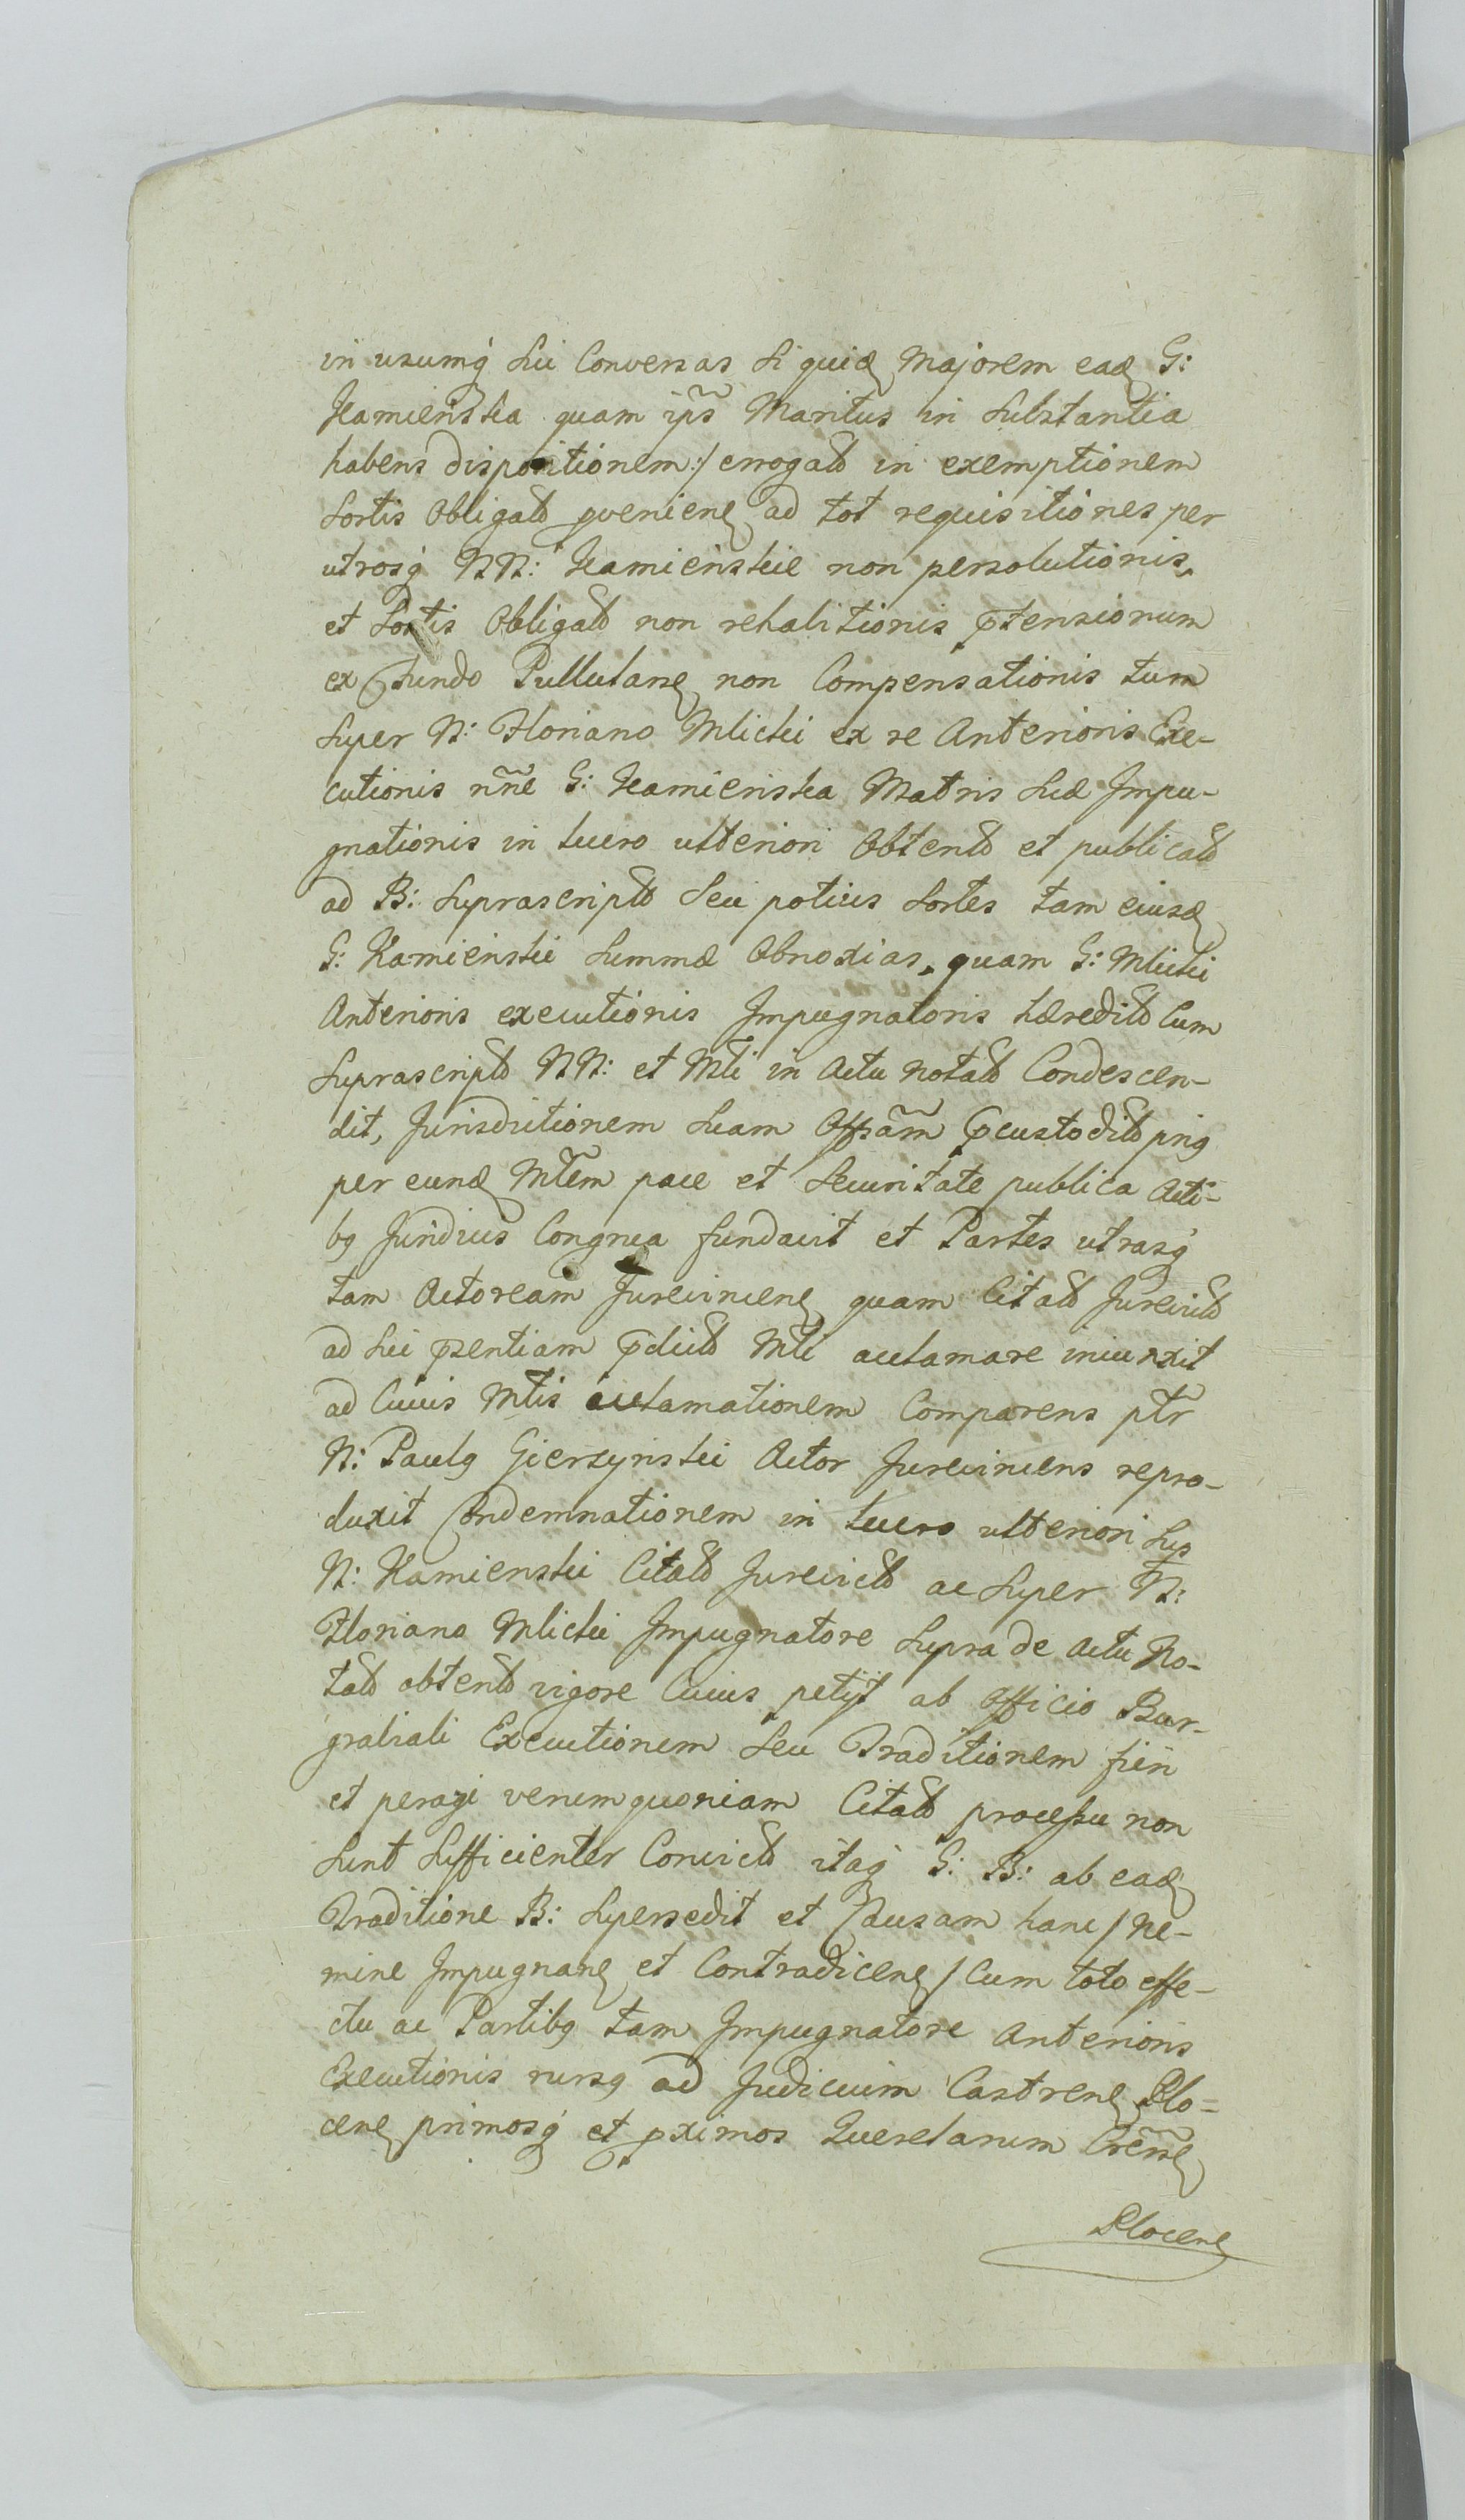 in usumq́ Sui Conversas siquid majorem ead G:
Kamienska quam ips̃ Maritus in Substantia
habens dispositionem:/ erogat in exemptionem
Sortis Obligat pvenien ad tot requisitiones per
utrosq́ NN: Kamienskie non persolutionis,
et Sortis Obligat non rehalitionis ptensionum
ex Fundo Pullulan non Compensationis tum
Super N: Floriano Mlicki ex re Anterioris Exe-
cutionis nñe G: Kamienska Matris Suæ Impu-
gnationis in lucro ulteriori Obtent et publicat
ad B: Suprascript Seu potius Sortes tam eiusd
G: Kamienski Summæ Obnoxias, quam G: Mlicki
Anterioris executionis Impugnatoris hæredit Cum
Suprascript NN: et Mli in Actu notat Condescen-
dit, Jurisdictionem Suam Offsam̃ pcustodit prig
per eund Mlem pace et Securitate publica Acti-
bg Juridicis Congrua fundavit et Partes utrasq́
tam Actoream Jurevincen quam Citat Jurevict
ad Sui psentiam pdict Mli acclamare iniunxit
ad Cuius Mlis acclamationem Comparens ptr
N: Paulg Gierzynski Actor Jurevincens repro-
duxit Condemnationem in lucro ulteriori Sup
N: Kamienski Citat Jurevict ac Super N:
Floriano Mlicki Impugnatore Supra de Actu No-
tat obtent vigore Cuius petijt ab Officio Bur-
grabiali Executionem Seu Traditionem fieri
et peragi verum quoniam Citat processu non
Sunt Sufficienter Convict itaq́ G: B: ab ead
Traditione B: Supersedit et Causam hanc / Ne-
mine Impugnan et Contradicen / Cum toto effe-
ctu ac Partibg tam Impugnatore Anterioris
Executionis rursg ad Judicium Castren Plo-
cen primosq́ et pximos Querelarum Cren̄
Plocen